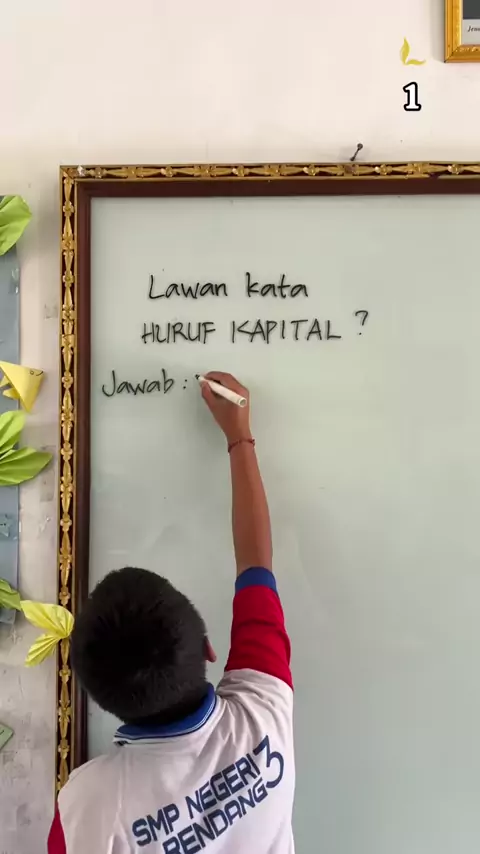 1
Lawan kata
HURUF KAPITAL ?
Jawab :
SMP NEGERI 3
RENDANG